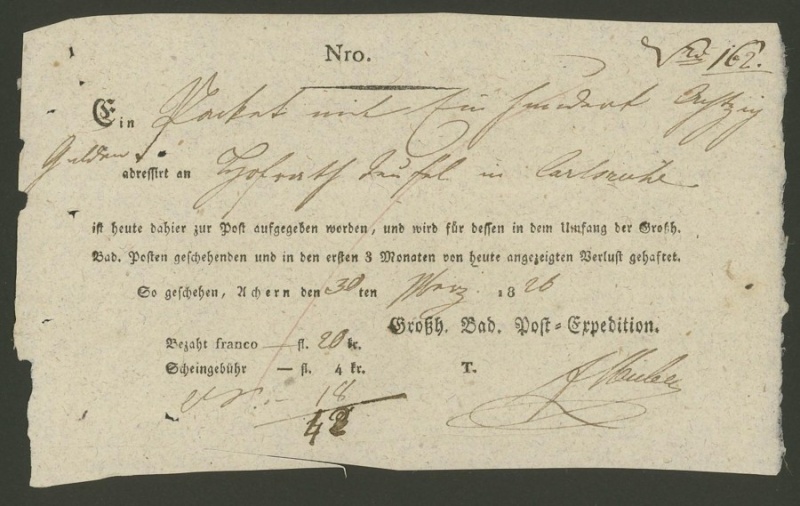 Nro. No. 162.
Ein Packet mit Ein hundert Achtzig
Gulden
adressirt an Hofrath Teufel in Carlsruhe
ist heute dahier zur Post aufgegeben worden, und wird für dessen in dem Umfang der Großh.
Bad. Posten geschehenden und in den ersten 3 Monaten von heute angezeigten Verlust gehaftet.
So geschehen, Achern den 30 ten Merz 1826
Großh. Bad. Post-Expedition.
Bezahlt franco — fl. 20 kr.
Scheingebühr — fl. 4 kr. T.
18
42